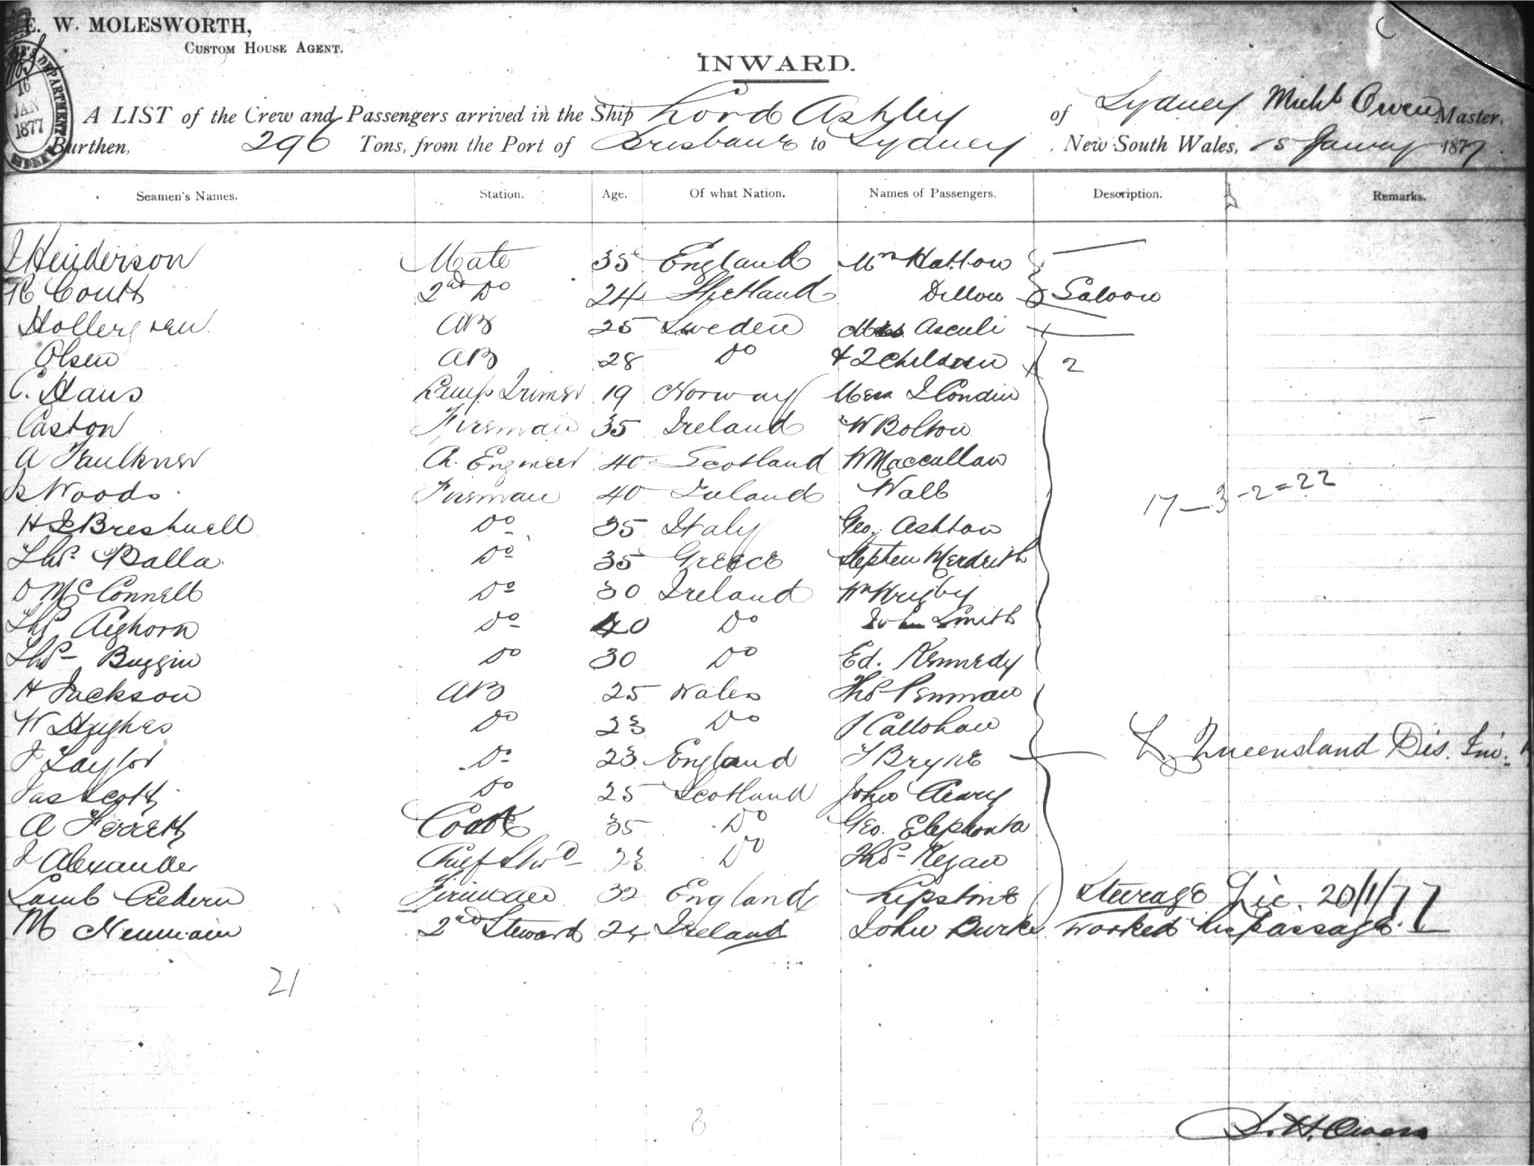 E. W. MOLESWORTH,
CUSTOM HOUSE AGENT.
16 JAN 1877
INWARD.
A LIST of the Crew and Passengers arrived in the Ship Lord Ashley of Sydney Owen Master,
Burthen, 296 Tons, from the Port of Brisbane to Sydney New South Wales, 15 January 1877
Seamen's Names. Station. Age. Of what Nation. Names of Passengers. Description. Remarks.
J Henderson Mate 35 England Mr Hatton
Coutts 2nd Do 24 Shetland Dillon Saloon
AB 25 Sweden Asculi
Olsen AB 28 Do & 2 Children 2
C. Hans Lamp Trimer 19 Norway J Condin
Caston Fireman 35 Ireland W Bolton
A Faulkner Ch. Engineer 40 Scotland W Maccallan
Woods Fireman 40 Ireland Wall
17 - 3 - 2 = 22
H Do 35 Italy Geo. Ashton
Thos. Balla Do 35 Greece Stephen Merdith
D McConnell Do 30 Ireland Wm Wrigby
Thos Do 40 Do John Smith
Thos Buggin Do 30 Do Ed. Kennedy
H Jackson AB 25 Wales Thos Penman
W Hughes Do 23 Do J Callohan
J Taylor Do 23 England T Bryne Queensland Dis.
Jas Scott Do 25 Scotland John
A Ferrett Cook 35 Do Geo.
J Alexander Chief Stwd 23 Do Thos Regan
Lamb Fireman 32 England Lipstine Steerage 20/1/77
M 2nd Steward 24 Ireland John Burke worked his passage.
21
8
Owens